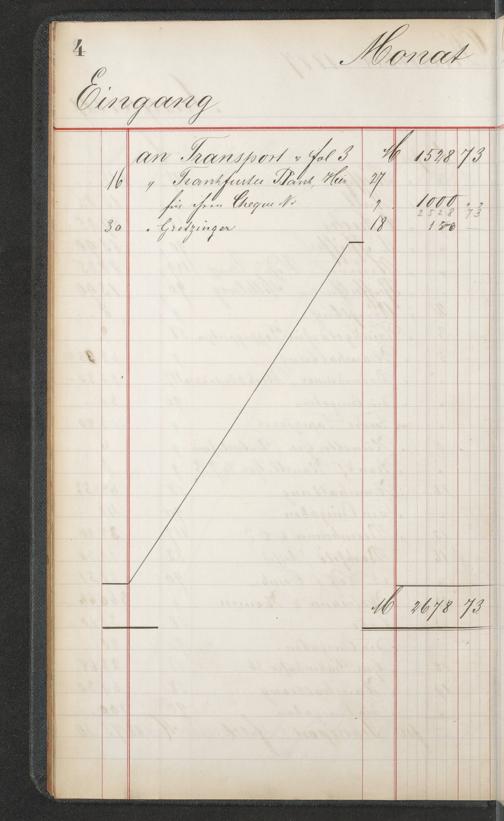 4
Monat
Eingang
an Transport v fol 3 M 1528 73
16 " Frankfurter Bank, Hier 27
für Cheque No 2 1000 " "
2528 73
30 " Grötzinger 18 150 -
M 2678 73